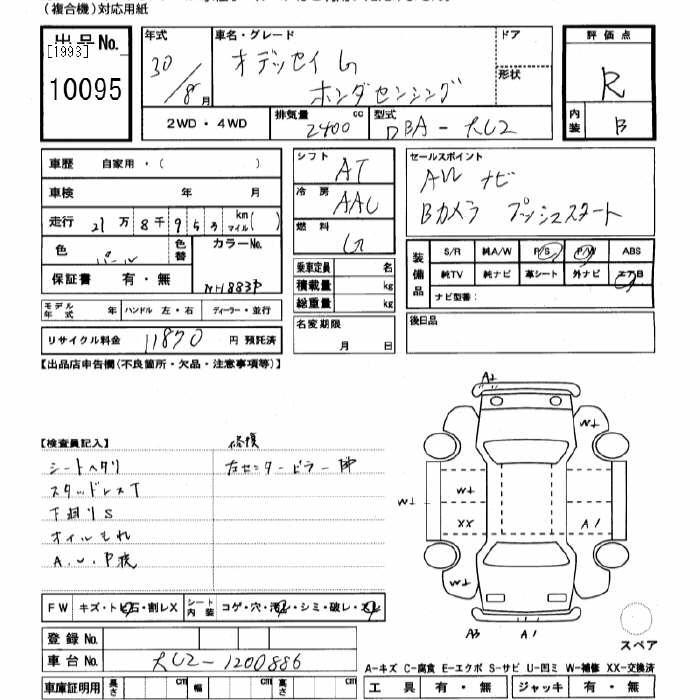 (複合機)対応用紙
出品No. [1993] 10095
年式 30/8月
車名・グレード オデッセイ G ホンダセンシング
ドア
形状
評価点 R
内装 B
2WD・4WD
排気量 2400 cc
型式 DBA-RC2
車歴 自家用・( )
車検 年 月
走行 21万8千953 km マイル( )
色 パール 色替 カラーNo. NH883P
保証書 有・無
モデル年式 年 ハンドル 左・右 ディーラー・並行
リサイクル料金 11870 円 預託済
シフト AT
冷房 AAC
燃料 G
乗車定員 名
積載量 kg
総重量 kg
名変期限 月 日
セールスポイント
AW ナビ
Bカメラ プッシュスタート
装備品 S/R 純A/W P/S P/W ABS
純TV 純ナビ 革シート 外ナビ エアB
ナビ型番:
後日品
【出品店申告欄(不良箇所・欠品・注意事項等)】
【検査員記入】
シートヘタリ
スタッドレスT
下廻りS
オイルもれ
修復
左センターピラー
FW キズ・トビ石・割レX シート内装 コゲ・穴・汚レ・シミ・破レ・スレ
登録No.
車台No. RC2-1200886
車庫証明用 長さ cm 幅 cm 高さ cm
A1
W1
W1
W1
XX
A1
W1
A3 A1
スペア
A-キズ C-腐食 E-エクボ S-サビ U-凹ミ W-補修 XX-交換済
工具 有・無 ジャッキ 有・無